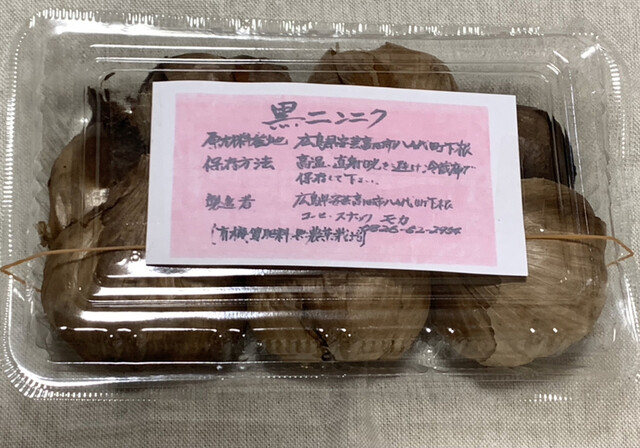 黒ニンニク
原材料産地 広島県安芸高田市八千代町下根
保存方法 高温、直射日光を避け、冷蔵庫で
保存して下さい。
製造者 広島県安芸高田市八千代町下根
コーヒースナック モカ
有機質肥料 無農薬栽培 0826-52-2994